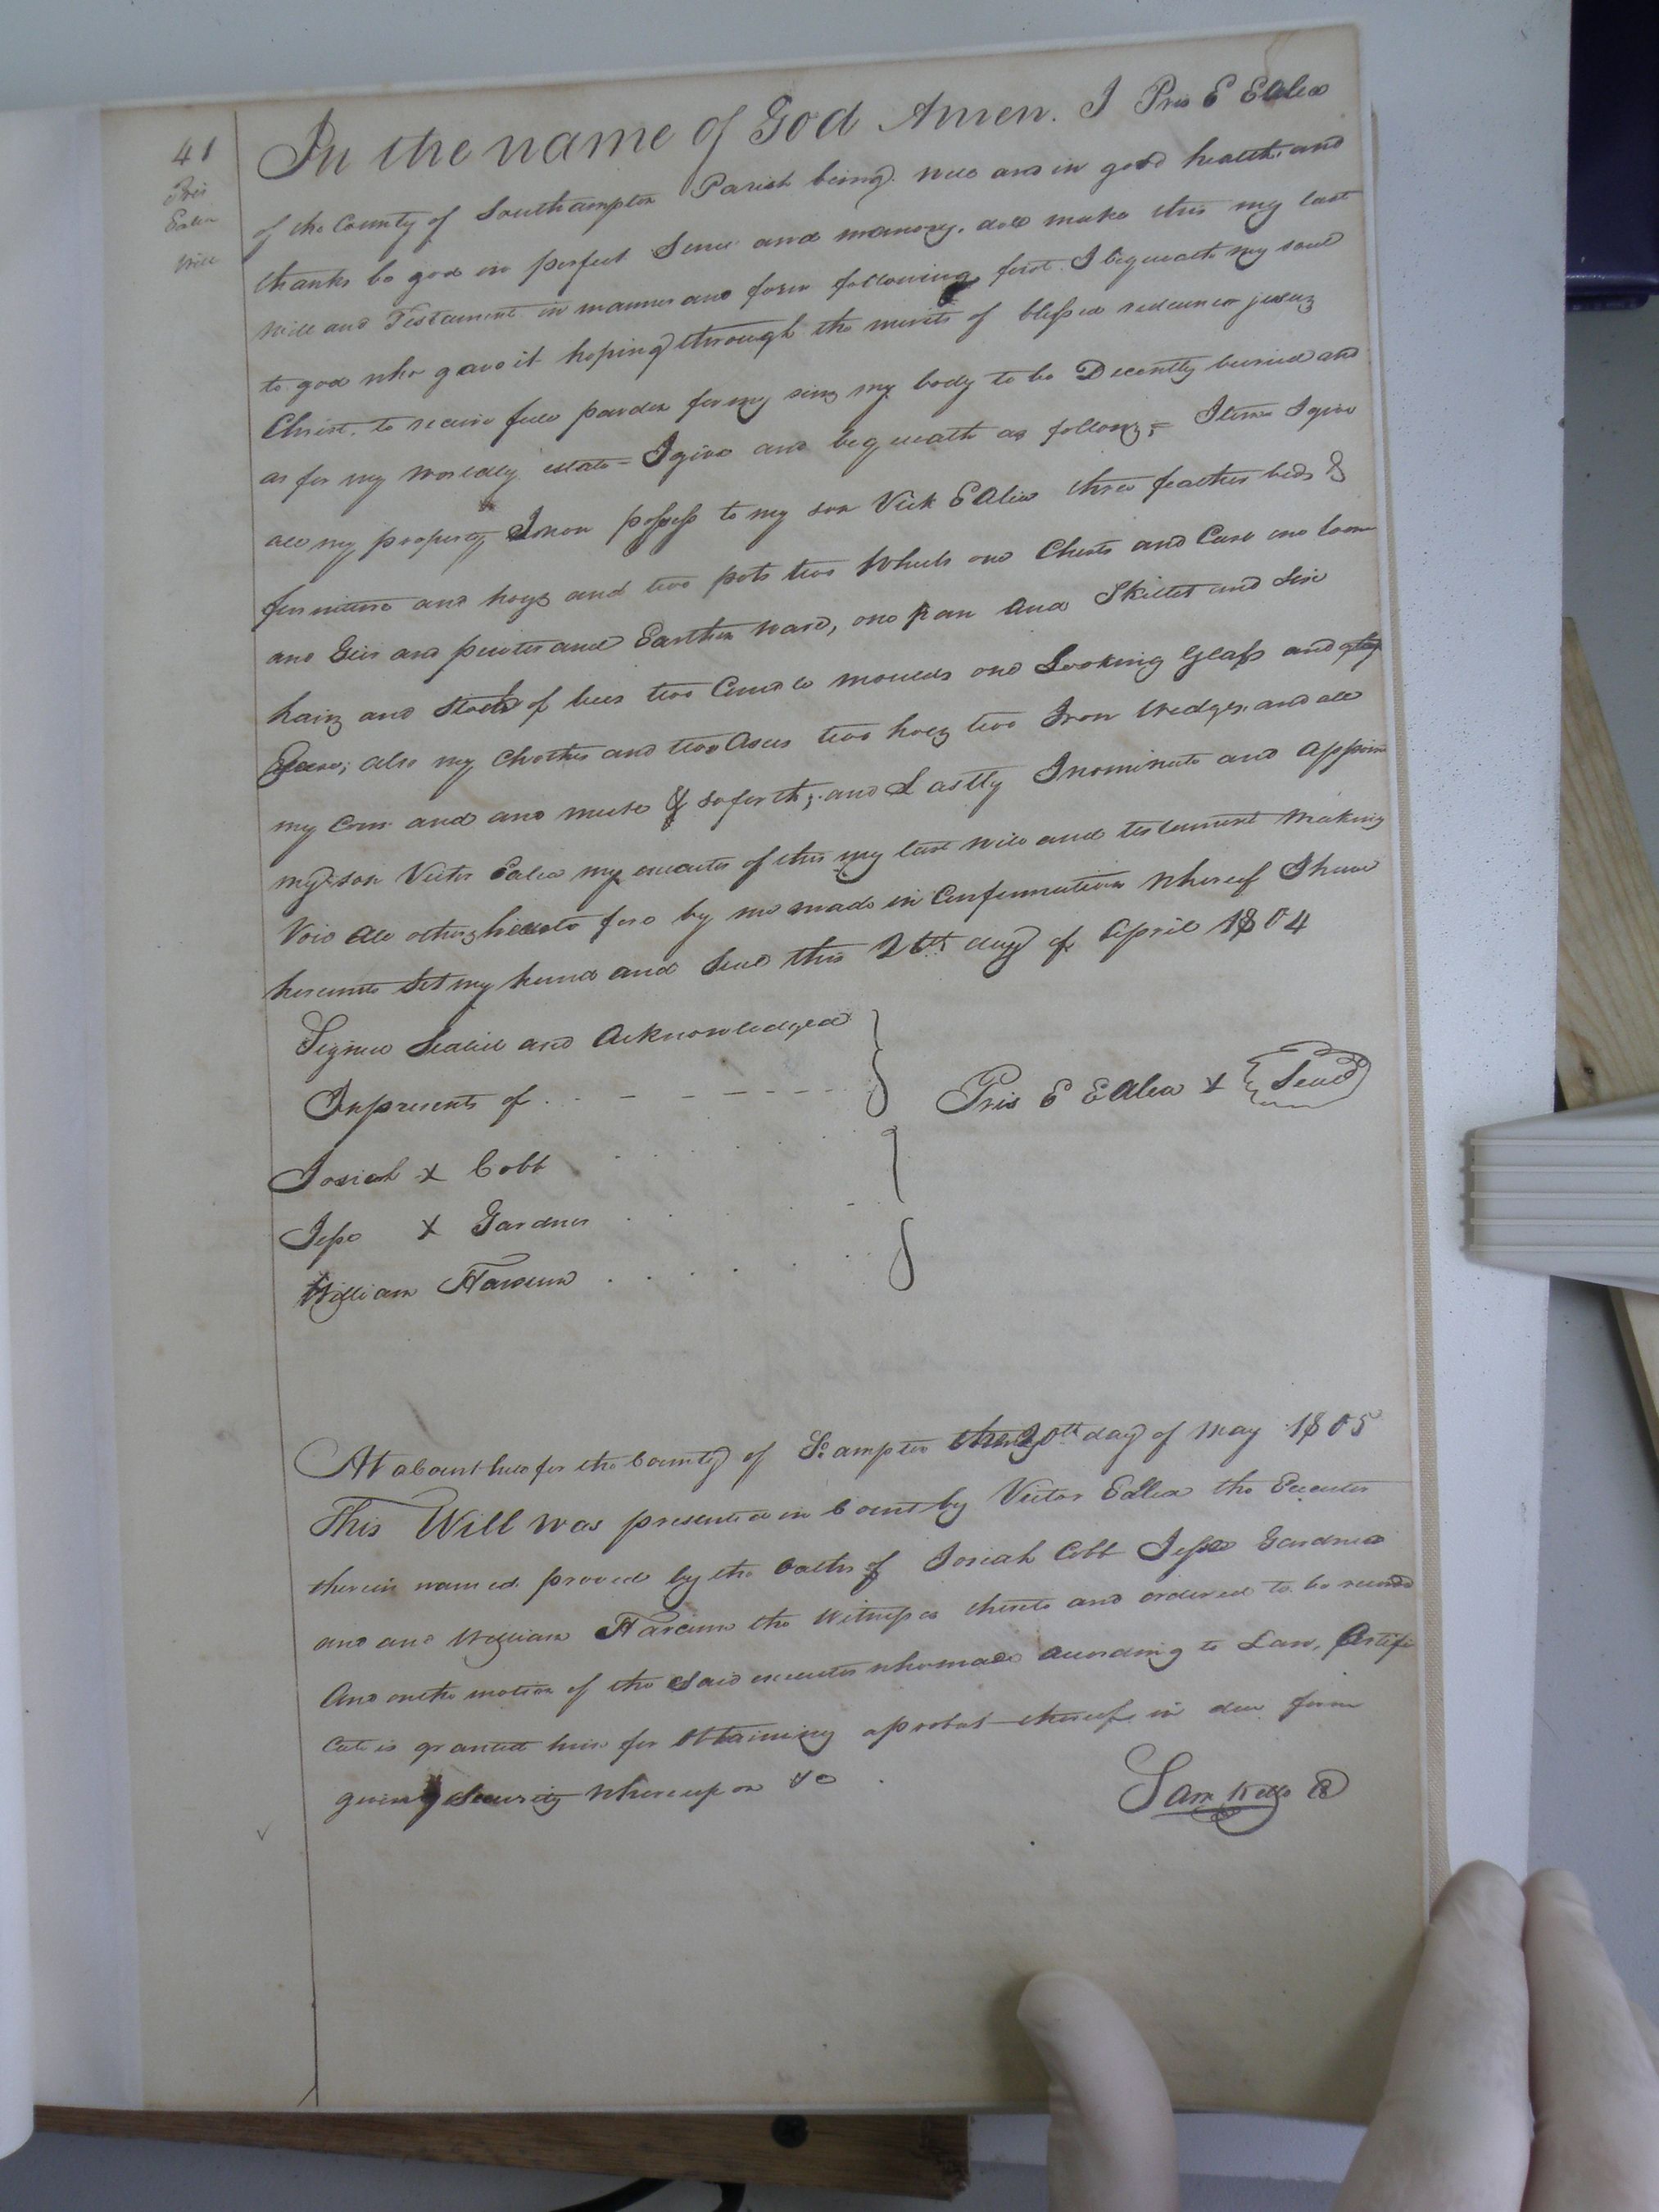 41
Pris
Ealea
Will
In the name of God Amen. I Pris E Ealea
of the County of Southampton Parish being well and in good health and
thanks be god in perfect Sence and memory, doe make this my last
Will and Testament in manner and form following, first I bequeath my soul
to god who gave it hoping through the merits of blessed redeemer jesuz
Christ. to receive full pardon for my sinz my body to be Decently buried and
as for my worldly estate = I give and bequeath as followz; = Item I give
all my property I now possess to my son Vick Ealea three feather beds &
furniture and hogz and two pots two Wheels one Chests and Case one loom
and Geir and pewter and Earthen ware, one pan and Skillet and Six
hairz and Stock of bees two Candle moulds one Looking Glass and
also my Clothes and two Axes two hoez two Iron Wedges and all
my Corn and and meete & so forth; and Lastly I nominate and appoint
my son Victor Ealea my executor of this my last will and testament making
Void all otherz heareto fore by me made in Confirmation whereof I have
hereunto Set my hand and Seal this 26th day of April 1804
Signed Sealed and Acknowledged
In presents of
Pris E Ealea X Seal
Josiah X Cobb
Jesse X Gardner
William Harcum
At a Court held for the County of So ampton the 20th day of May 1805
This Will was presented in Court by Victor Ealea the Executor
therein named proved by the Oaths of Josiah Cobb Jesse Gardner
and and William Harcum the Witnesses thereto and ordered to be record
And on the motion of the Said executor who made according to Law, Certifi
cate is granted him for Obtaining a probat thereof in due form
giveing Security whereup on &c
Sam Kello C